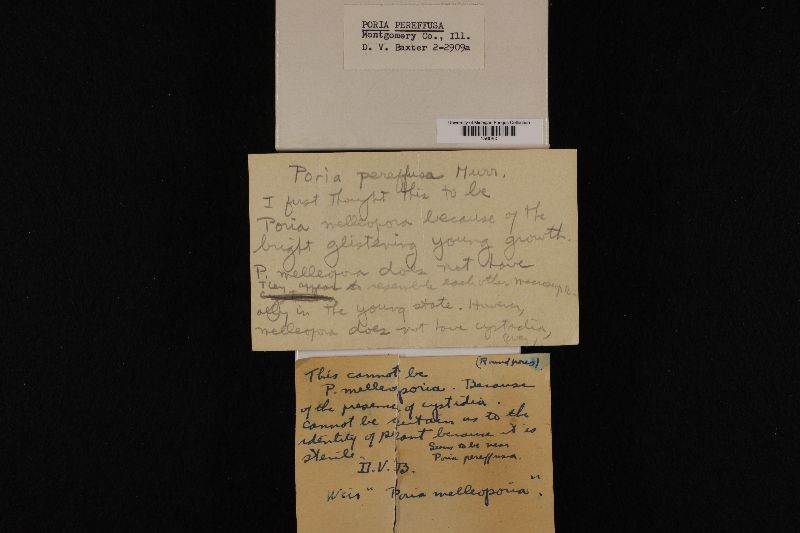 PORIA PEREFFUSA
Montgomery Co., Ill.
D. V. Baxter 2-2909a
University of Michigan Fungus Collection
Poria pereffusa Murr.
I first thought this to be
Poria melleopora because of the
bright glistening young growth.
P. melleopora does not have
They appear to resemble each other macroscopic-
ally in the young state. However,
melleopora does not have cystidia,
(Round pores)
This cannot be
P. melleoporia. Because
of the presence of cystidia.
Cannot be certain as to the
identity of plant because it is
sterile.
Seems to be near
Poria pereffusa.
D.V.B.
Weir "Poria melleoporia".